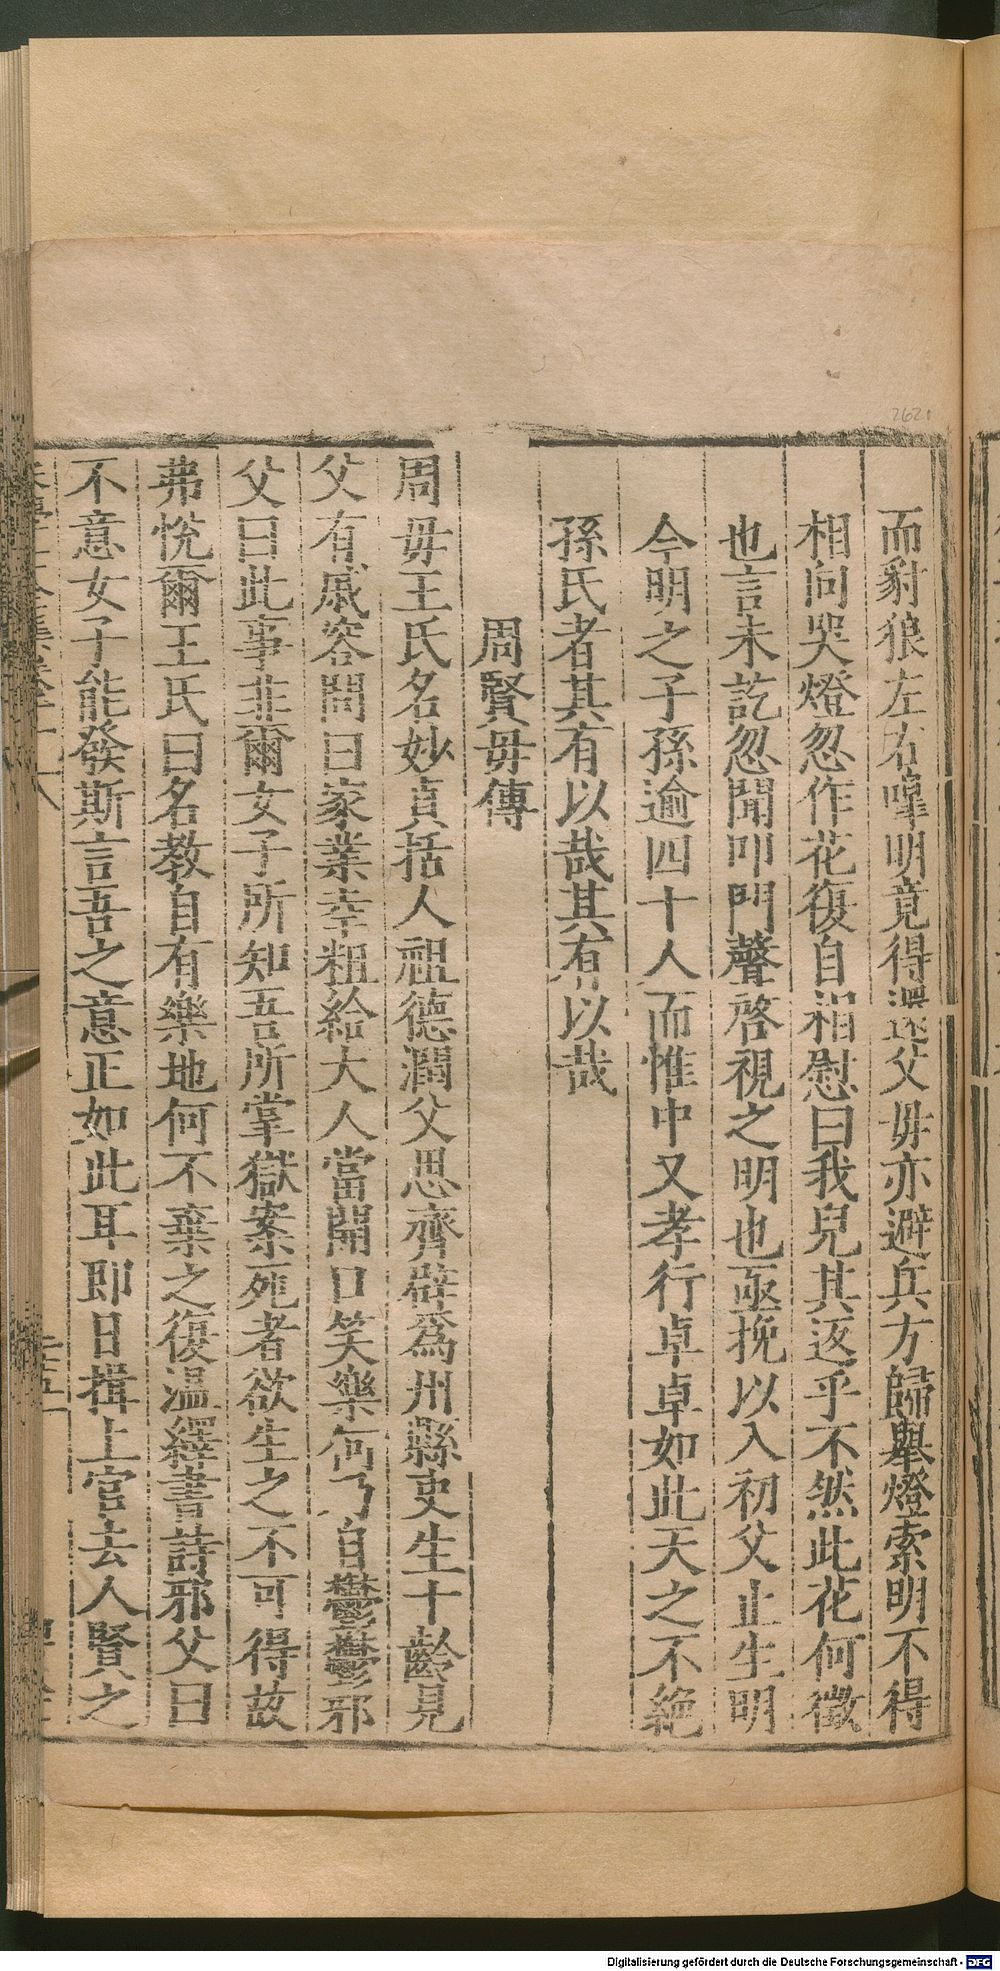 2621
而豺狼左右嘷明竟得還父毋亦避兵方歸舉燈索明不得
相向哭燈忽作花復自相慰曰我兒其返乎不然此花何徵
也言未訖忽聞叩門聲啓視之明也亟挽以入初父止生明
今明之子孫逾四十人而惟中又孝行卓卓如此天之不絶
孫氏者其有以哉其有以哉
周賢毋傳
周毋王氏名妙貞括人祖德潤父思齊辟爲州縣吏生十齡見
父有戚容問曰家業幸粗給大人當開口笑樂何乃自鬱鬱邪
父曰此事非爾女子所知吾所掌獄案死者欲生之不可得故
弗悅爾王氏曰名教自有樂地何不棄之復温繹書詩邪父曰
不意女子能發斯言吾之意正如此耳即日揖上官去人賢之
Digitalisierung gefördert durch die Deutsche Forschungsgemeinschaft - DFG